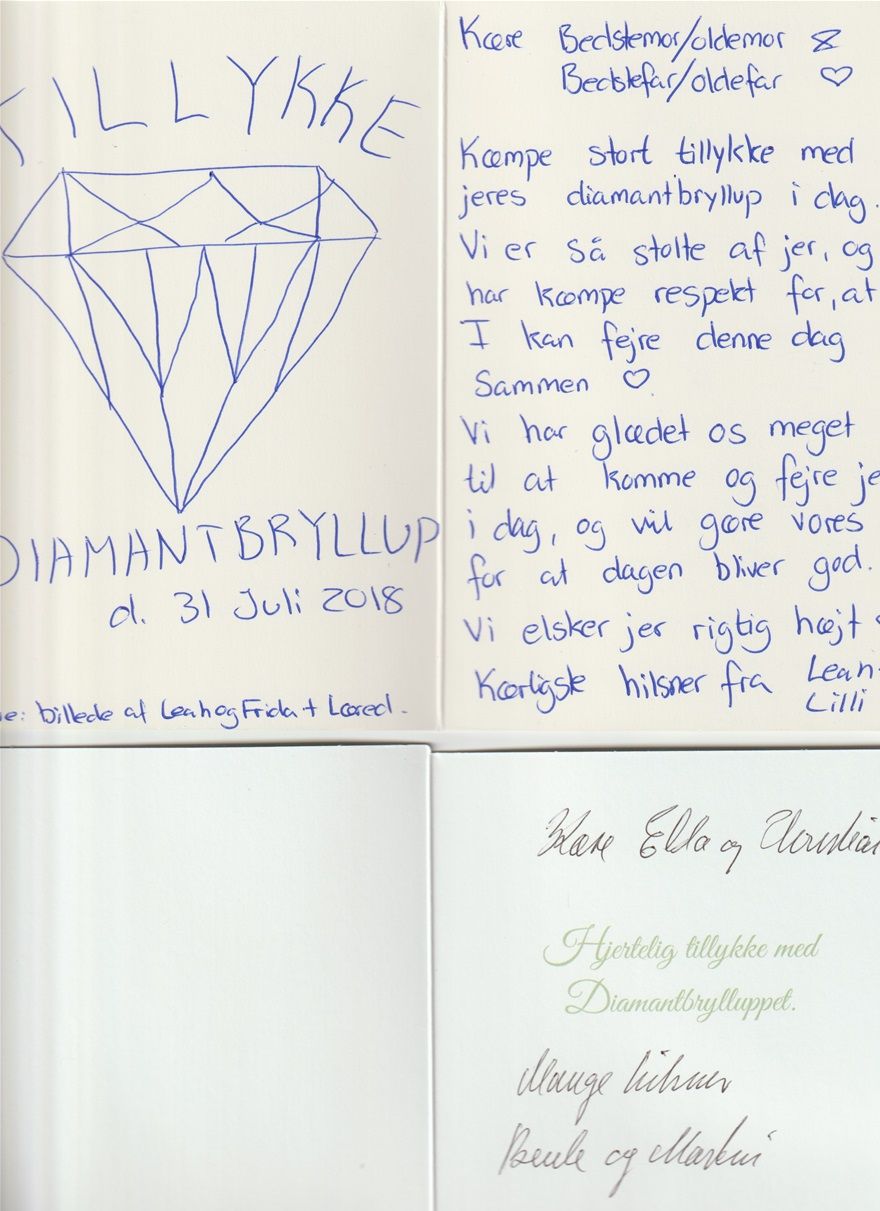 TILLYKKE
DIAMANTBRYLLUP
d. 31 Juli 2018
billede af Leah og Frida + Lærred.
Kære Bedstemor/oldemor
Bedstefar/oldefar ♡
Kæmpe stort tillykke med
jeres diamantbryllup i dag.
Vi er så stolte af jer, og
har kæmpe respekt for, at
I kan fejre denne dag
Sammen ♡
Vi har glædet os meget
til at komme og fejre je
i dag, og vil gøre vores
for at dagen bliver god.
Vi elsker jer rigtig højt
Kærligste hilsner fra Leah
Lilli
Kære Ella og
Hjertelig tillykke med
Diamantbrylluppet.
Mange hilsner
og